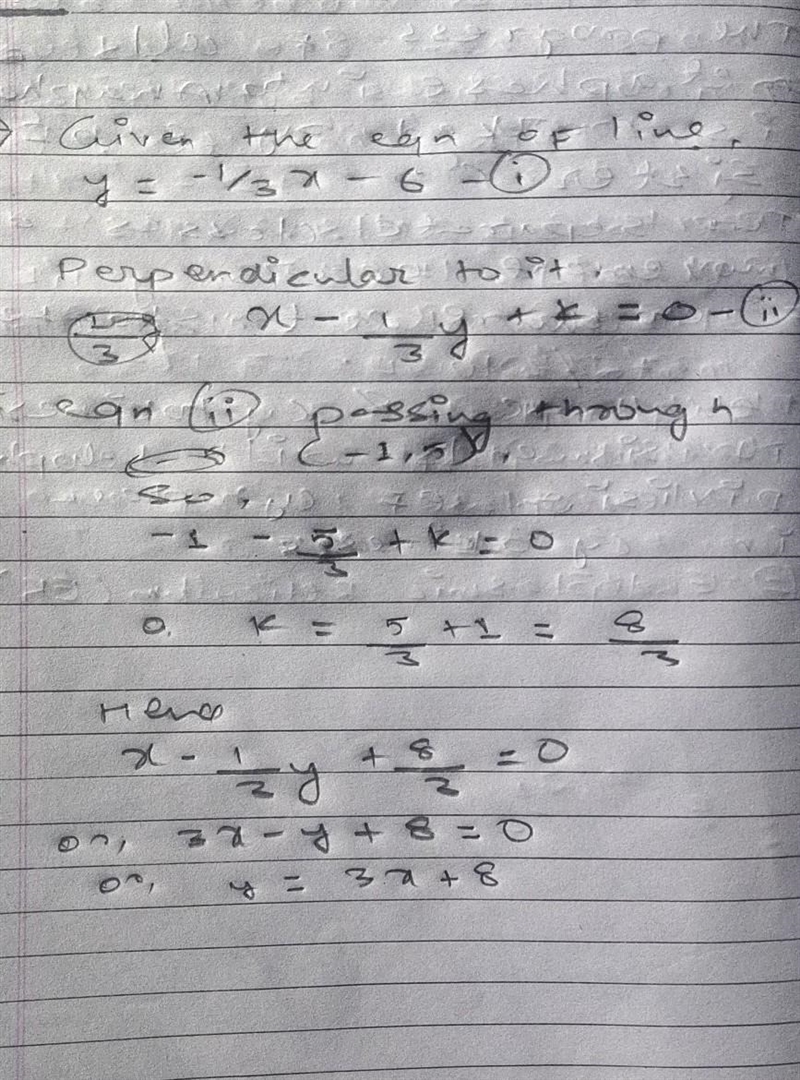 Given the eqn of line,
y = -1/3 x - 6 - (i)
Perpendicular to it.
x - 1/3 y + k = 0 - (ii)
eqn (ii) passing through
(-1, 5).
So,
-1 - 5/3 + k = 0
o. k = 5/3 + 1 = 8/3
Hence
x - 1/3 y + 8/3 = 0
or, 3x - y + 8 = 0
or, y = 3x + 8